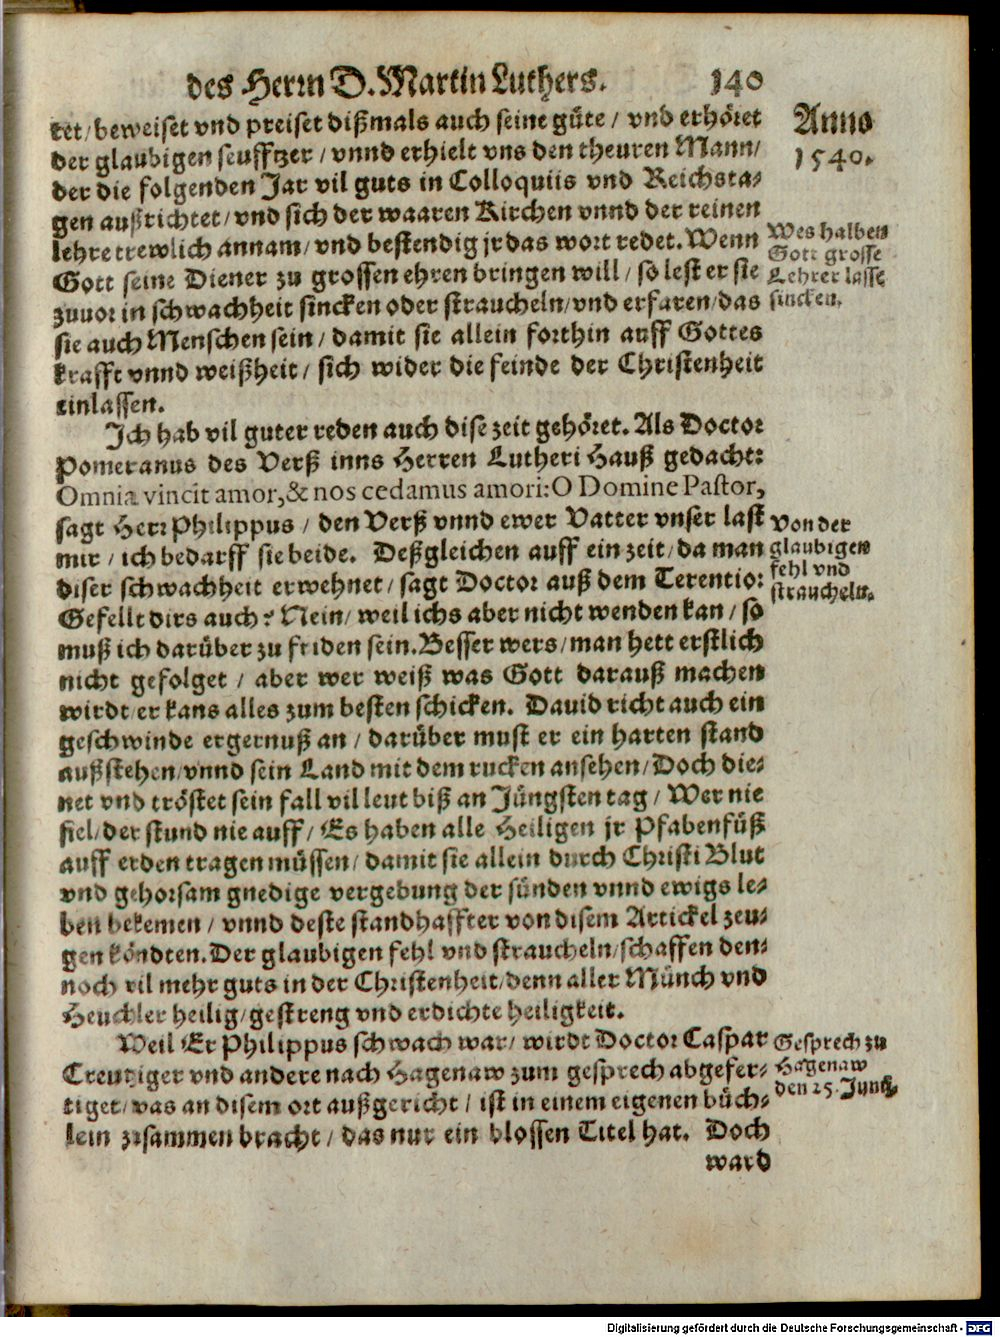 des Herrn D. Martin Luthers. 140
tet/ beweiset vnd preiset dißmals auch seine güte / vnd erhöret
der glaubigen seufftzer / vnnd erhielt vns den theuren Mann/
der die folgenden Jar vil guts in Colloquiis vnd Reichsta-
gen außrichtet/ vnd sich der waaren Kirchen vnnd der reinen
lehre trewlich annam/ vnd bestendig jr das wort redet. Wenn
Gott seine Diener zu grossen ehren bringen will / so lest er sie
zuuor in schwachheit sincken oder straucheln/ vnd erfaren/ das
sie auch Menschen sein / damit sie allein forthin auff Gottes
krafft vnnd weißheit / sich wider die feinde der Christenheit
einlassen.
Anno
1540.
Wes halben
Gott grosse
Lehrer lasse
sincken.
Ich hab vil guter reden auch dise zeit gehöret. Als Doctor
Pomeranus des Verß inns Herren Lutheri Hauß gedacht:
Omnia vincit amor, & nos cedamus amori: O Domine Pastor,
sagt Herr Philippus / den Verß vnnd ewer Vatter vnser last
mir / ich bedarff sie beide. Deßgleichen auff ein zeit/ da man
diser schwachheit erwehnet/ sagt Doctor auß dem Terentio:
Gefellt dirs auch? Nein/ weil ichs aber nicht wenden kan / so
muß ich darüber zu friden sein. Besser wers/ man hett erstlich
nicht gefolget / aber wer weiß was Gott darauß machen
wirdt/ er kans alles zum besten schicken. Dauid richt auch ein
geschwinde ergernuß an / darüber must er ein harten stand
außstehen/ vnnd sein Land mit dem rucken ansehen/ Doch die-
net vnd tröstet sein fall vil leut biß an Jüngsten tag / Wer nie
fiel/ der stund nie auff / Es haben alle Heiligen jr Pfabenfüß
auff erden tragen müssen/ damit sie allein durch Christi Blut
vnd gehorsam gnedige vergebung der sünden vnnd ewigs le-
ben bekemen / vnnd deste standhaffter von disem Artickel zeu-
gen köndten. Der glaubigen fehl vnd straucheln/ schaffen den-
noch vil mehr guts in der Christenheit/ denn aller Münch vnd
Heuchler heilig/ gestreng vnd erdichte heiligkeit.
Von der
glaubigen
fehl vnd
straucheln.
Weil Er Philippus schwach war/ wirdt Doctor Caspar
Creutziger vnd andere nach Hagenaw zum gesprech abgefer-
tiget/ was an disem ort außgericht / ist in einem eigenen büch-
lein zusammen bracht / das nur ein blossen Titel hat. Doch
ward
Gesprech zu
Hagenaw
den 25. Junij.
Digitalisierung gefördert durch die Deutsche Forschungsgemeinschaft - DFG